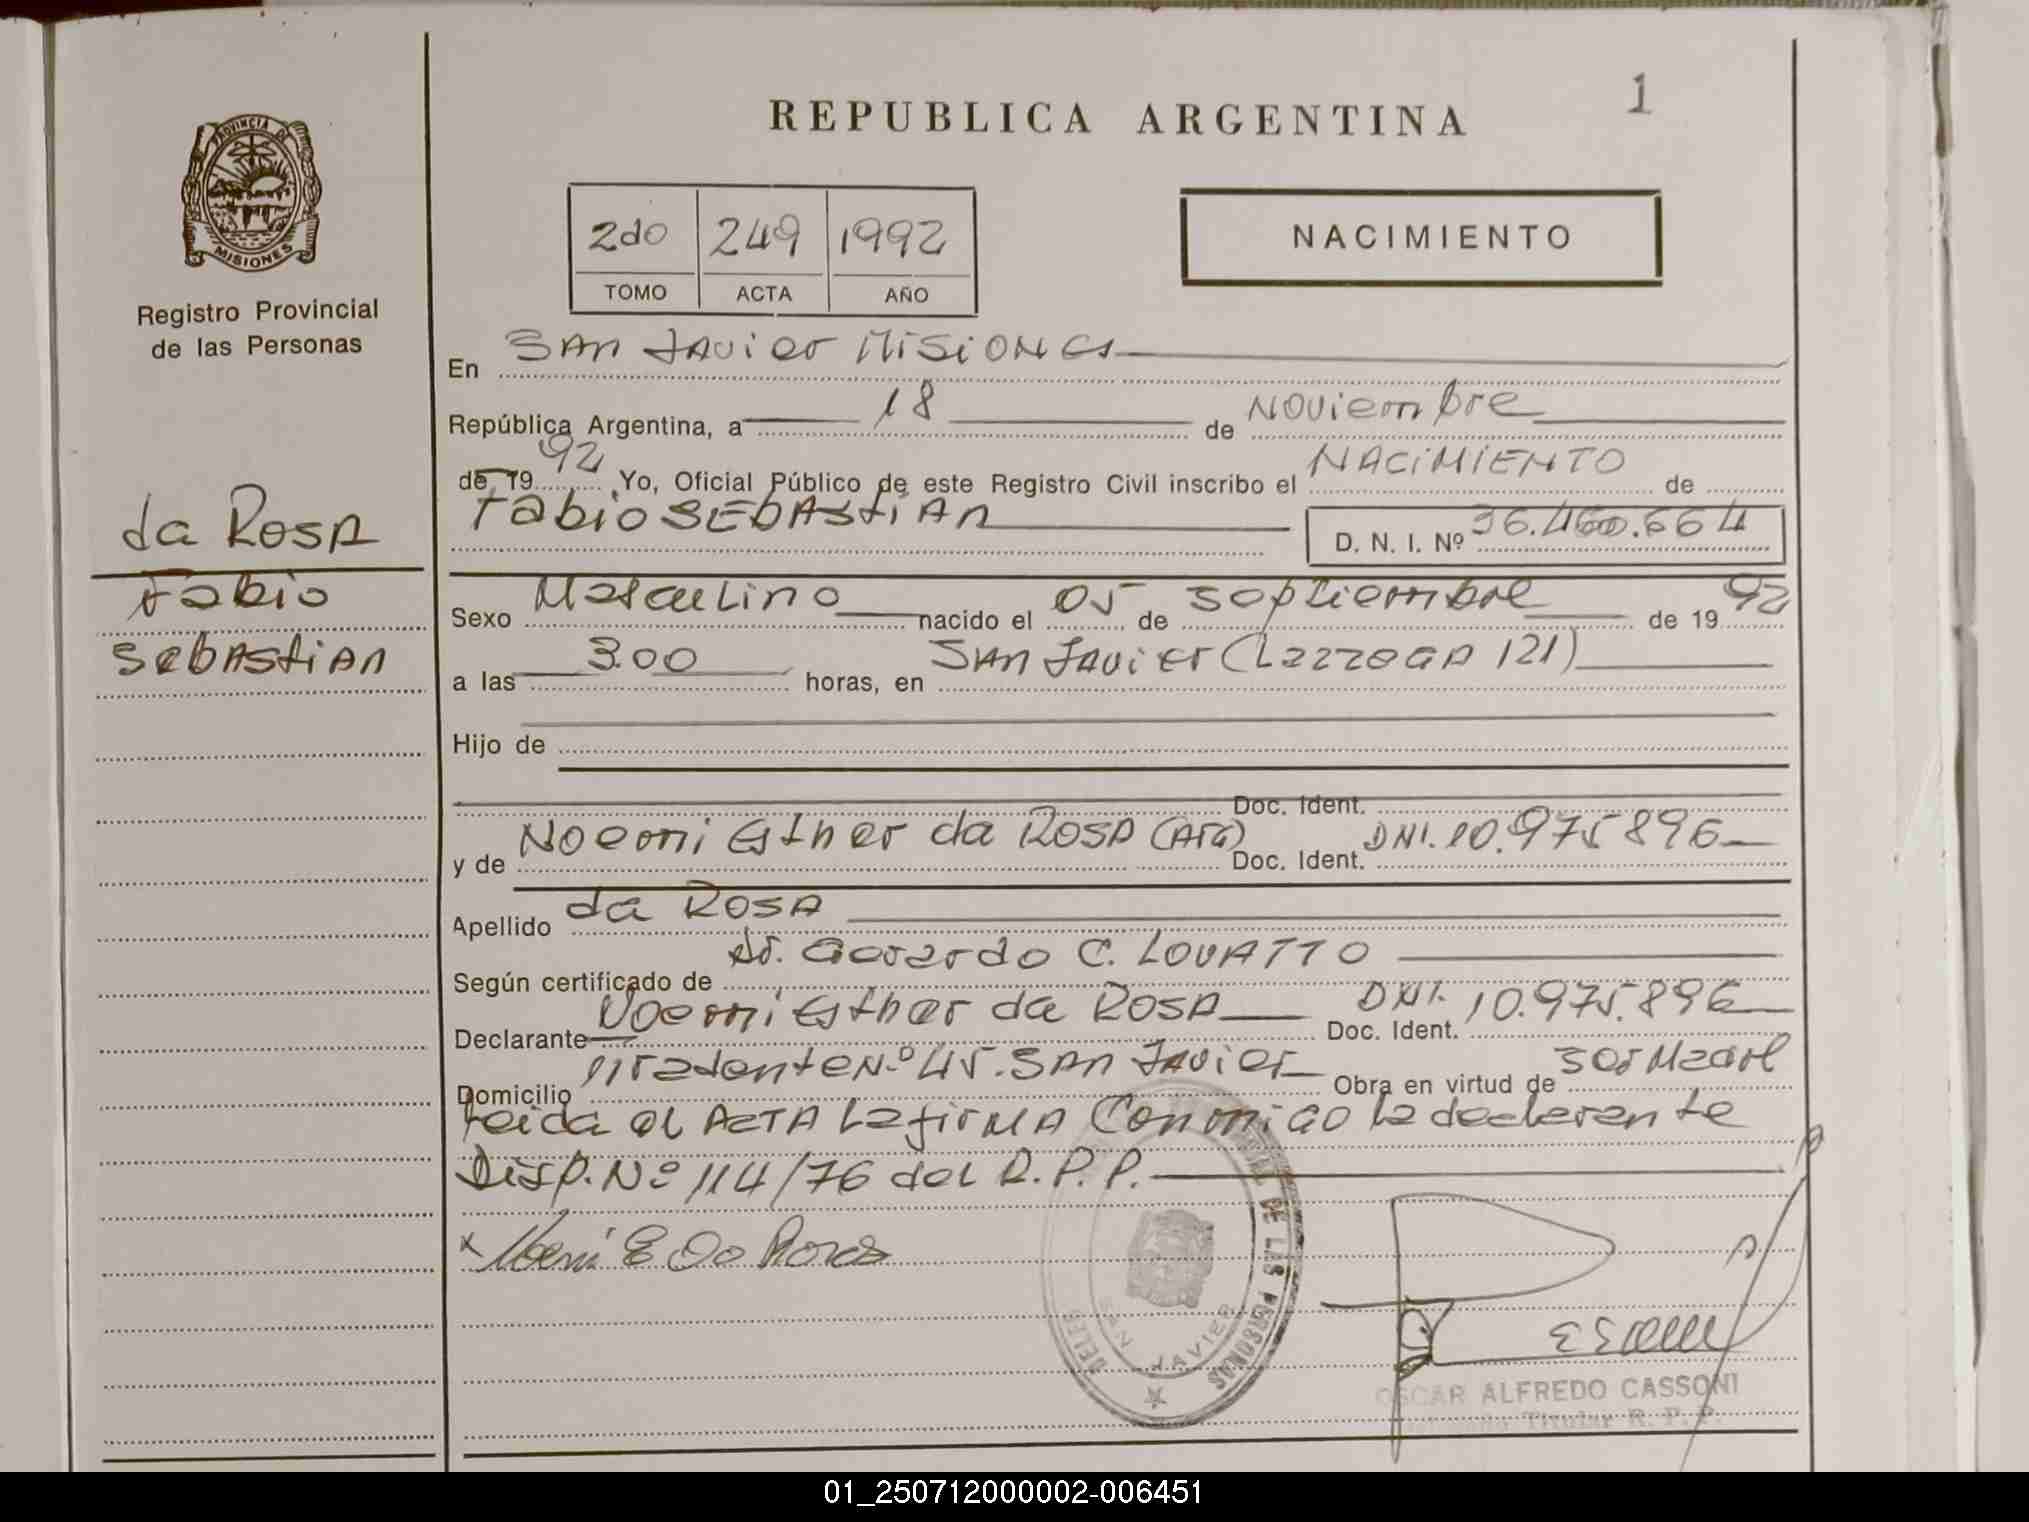 REPUBLICA ARGENTINA
1
PROVINCIA DE
MISIONES
Registro Provincial
de las Personas
2do 249 1992
TOMO ACTA AÑO
NACIMIENTO
En SAN JAVIER MISIONES
República Argentina, a 18 de Noviembre
de 19 92 Yo, Oficial Público de este Registro Civil inscribo el NACIMIENTO de
Fabio SEBASTIAN D. N. I. Nº 36.460.664
da ROSA
Fabio
SEBASTIAN
Sexo Masculino nacido el 05 de septiembre de 19 92
a las 3.00 horas, en SAN JAVIER ( 121)
Hijo de
Doc. Ident.
y de Noemi Esther da ROSA (Arg) Doc. Ident. DNI. 10.975896
Apellido da ROSA
Según certificado de Dr. Gerardo C. LOVATTO
Declarante Noemi Esther da ROSA Doc. Ident. DNI. 10.975.896
Domicilio Nº 45. SAN JAVIER Obra en virtud de ser Madre
leida el ACTA la firMA Conmigo la declarante
Disp. Nº 114/76 del R.P.P.
x Noemi E Da Rosa
DE LAS PERSONAS
SAN JAVIER
OSCAR ALFREDO CASSONI
Titular R. P. P.
01_250712000002-006451